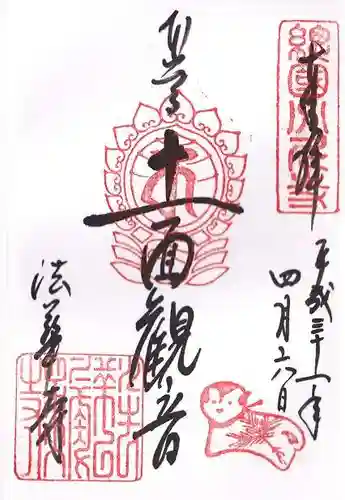 總國分尼寺
奉拝
平成三十一年
四月六日
本尊
十一面観音
法華寺